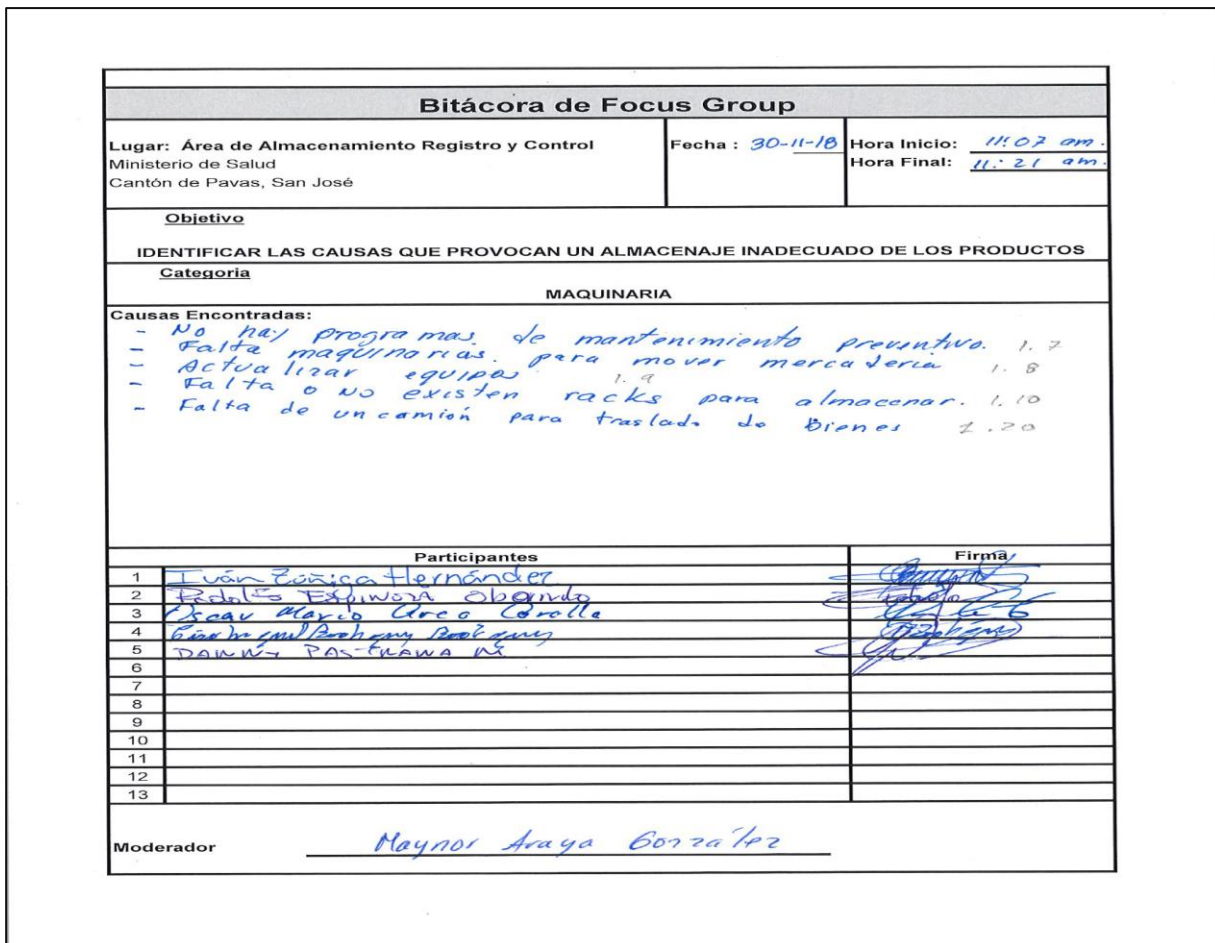 Bitácora de Focus Group
Lugar: Área de Almacenamiento Registro y Control
Ministerio de Salud
Cantón de Pavas, San José
Fecha : 30-11-18
Hora Inicio: 11:07 am.
Hora Final: 11:21 am.
Objetivo
IDENTIFICAR LAS CAUSAS QUE PROVOCAN UN ALMACENAJE INADECUADO DE LOS PRODUCTOS
Categoria
MAQUINARIA
Causas Encontradas:
- No hay programas de mantenimiento preventivo. 1.7
- Falta maquinarias. para mover mercaderia 1.8
- Actualizar equipos 1.9
- Falta o no existen racks para almacenar. 1.10
- Falta de un camión para traslado de Bienes 1.20
Participantes Firma
1 Iván Zúñiga Hernández
2 Espinoza Obando
3 Oscar Mario
4
5 DANNY PASTRANA M
6
7
8
9
10
11
12
13
Moderador Maynor Araya González